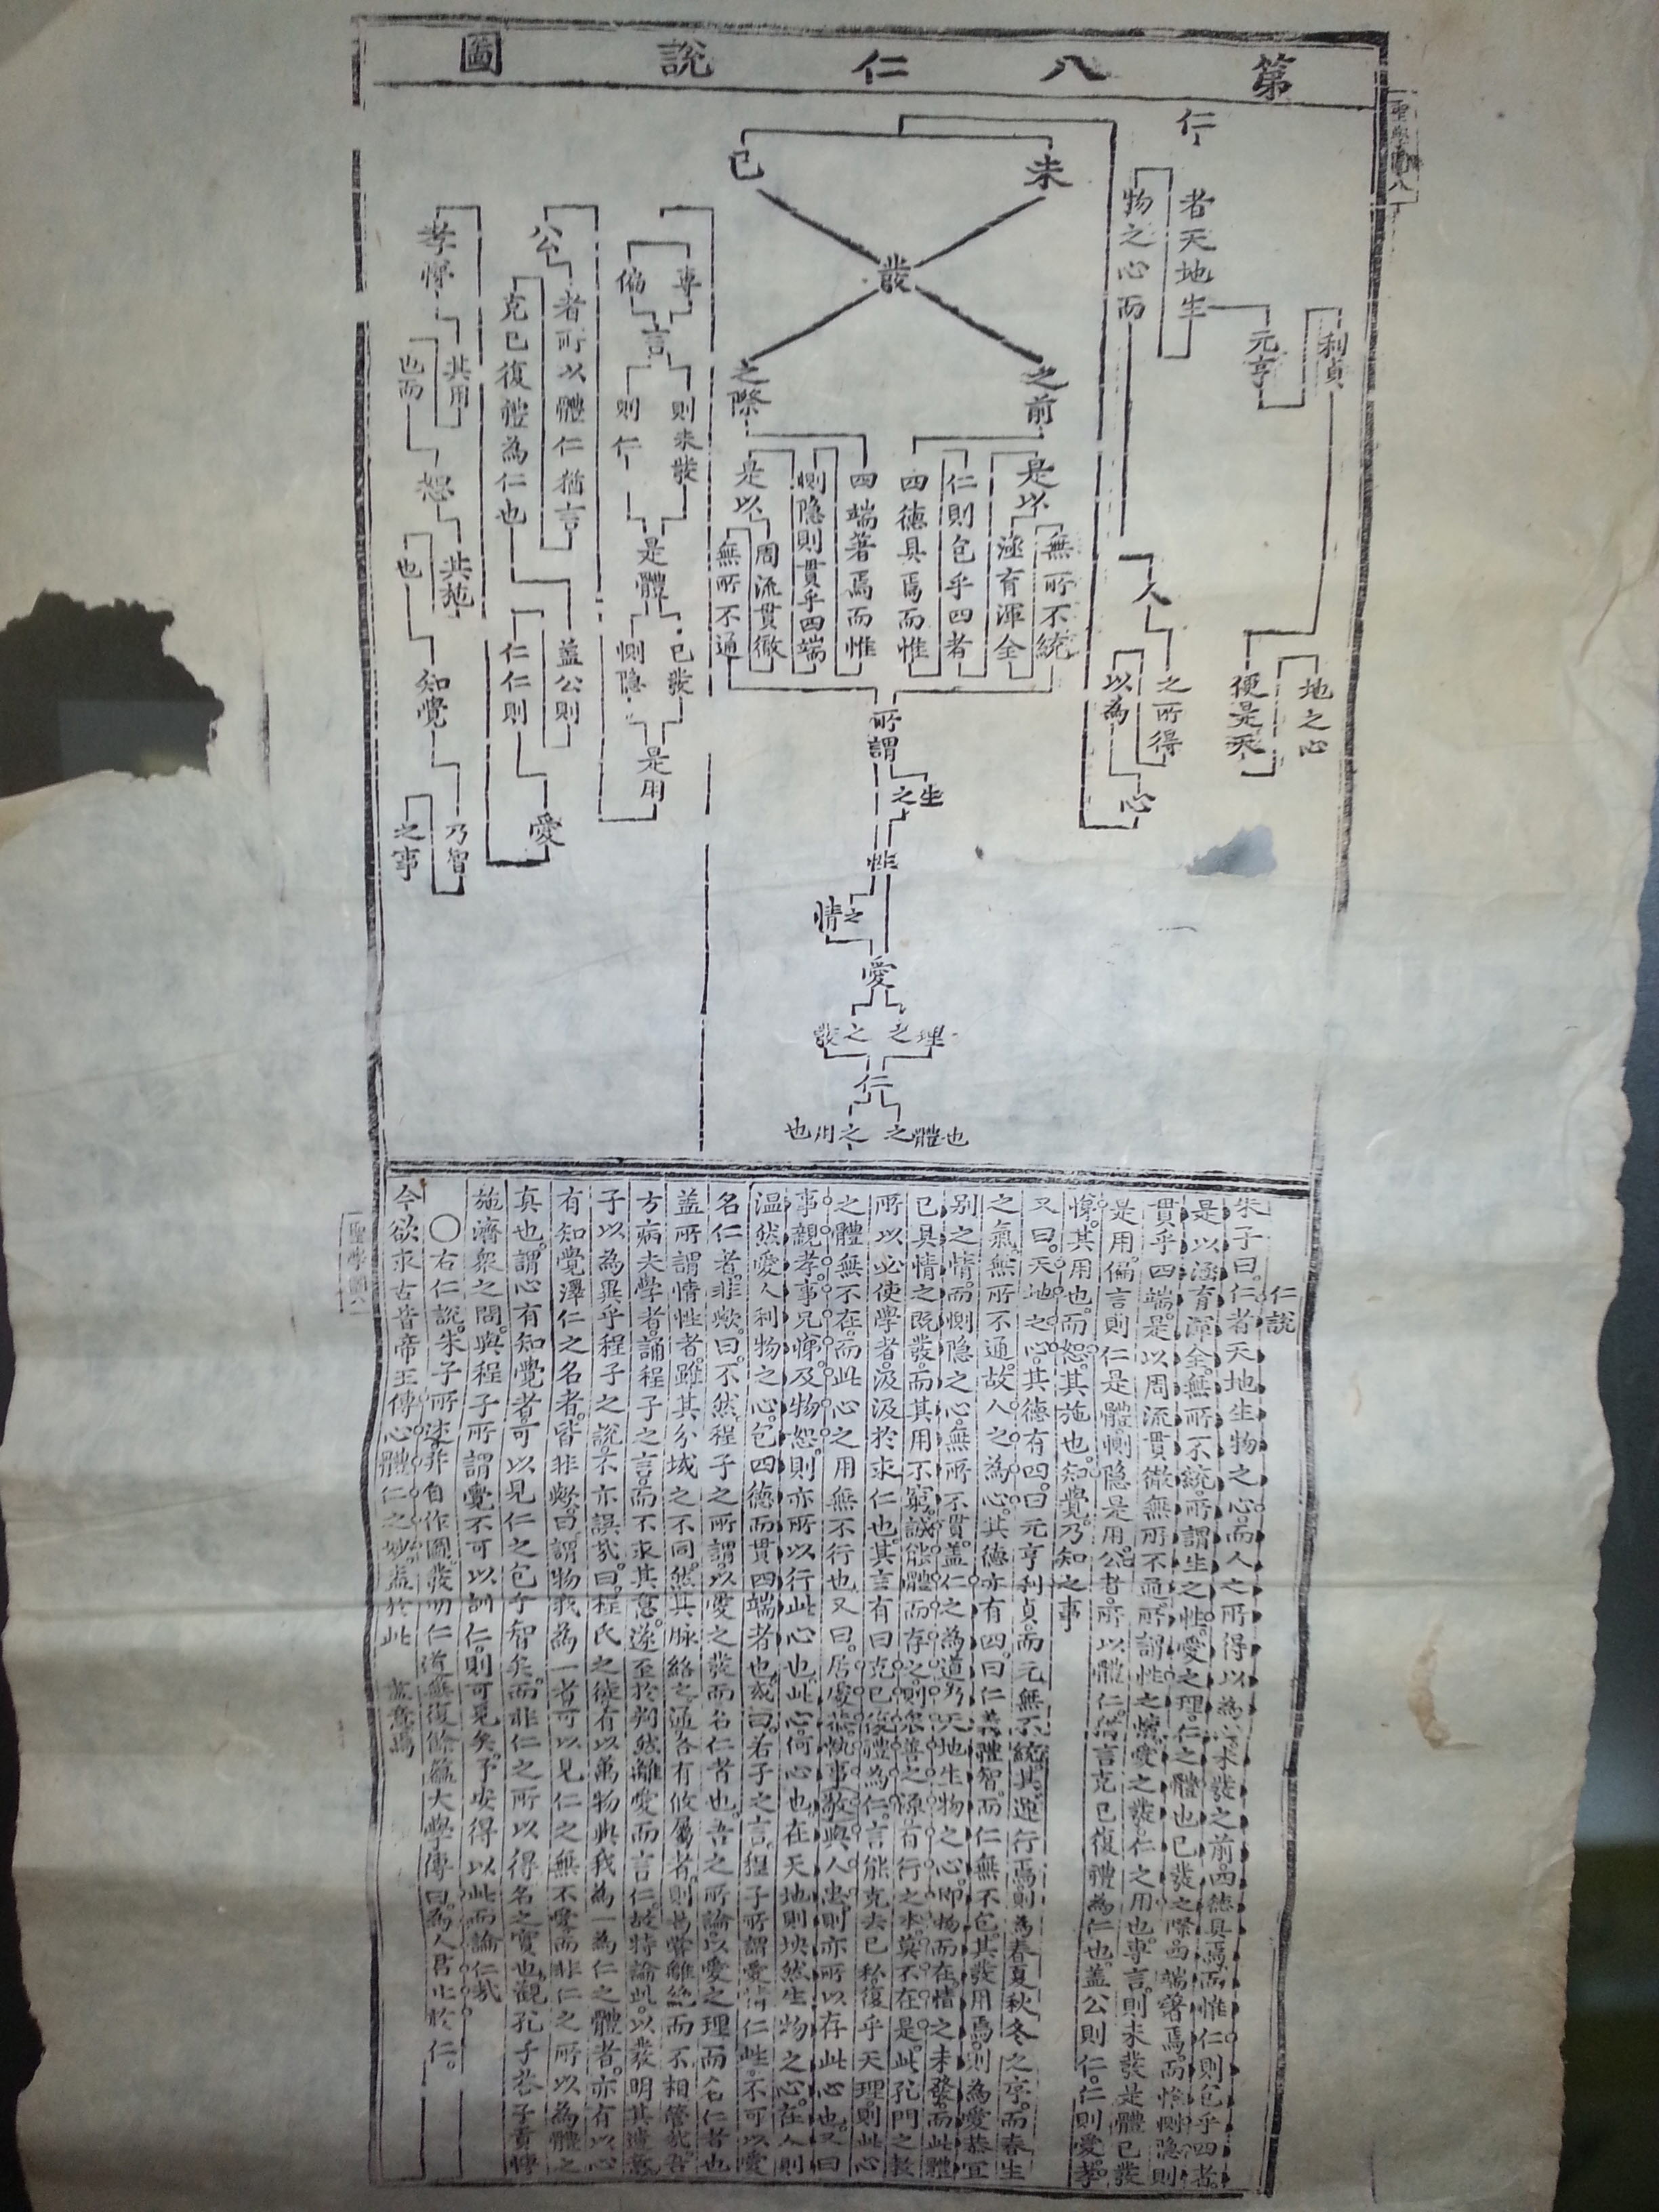 第八仁說圖
聖學圖八
仁
者天地生
物之心而
元亨
利貞
便是天
地之心
人
之所得
以為
心
未
已
發
之前
之際
是以
無所不統
涵育渾全
仁則包乎四者
四德具焉而惟
四端著焉而惟
惻隐則貫乎四端
是以
周流貫徹
無所不通
所謂
生之
性
之情
愛
之理
之發
仁
之體也
之用也
專
偏
言
則未發
則仁
是體
已發
惻隐
是用
公
者所以體仁猶言
克己復禮為仁也
盖公則
仁仁則
愛
孝悌
其用
也而
恕
其施
也
知覺
乃智
之事
仁説
朱子曰。仁者天地生物之心。而人之所得以為心。未發之前。四德具焉。而惟仁則包乎四者。
是以涵育渾全。無所不統。所謂生之性。愛之理。仁之體也。已發之際。四端著焉。而惟惻隐則
貫乎四端。是以周流貫徹無所不通。所謂性之情。愛之發。仁之用也。專言則未發是體已發
是用。偏言則仁是體。惻隐是用。公者。所以體仁。猶言克己復禮為仁也。盖公則仁。仁則愛。孝
悌。其用也。而恕。其施也。知覺。乃知之事
又曰。天地之心。其德有四。曰元亨利貞。而元無不統。其運行焉。則為春夏秋冬之序。而春生
之氣。無所不通。故人之為心。其德亦有四。曰仁義禮智。而仁無不包。其發用焉。則為愛恭宜
别之情。而惻隐之心。無所不貫。盖仁之為道。乃天地生物之心。即物而在。情之未發。而此體
已具。情之既發。而其用不窮。誠能體而存之。則衆善之源。百行之本。莫不在是。此孔門之敎
所以必使學者。汲汲於求仁也。其言有曰克己復禮為仁。言能克去己私。復乎天理。則此心
之體無不在。而此心之用無不行也。又曰。居處恭執事敬與人忠。則亦所以存此心也。又曰
事親孝。事兄悌。及物恕。則亦所以行此心也。此心何心也。在天地則坱然生物之心。在人則
温然愛人利物之心。包四德而貫四端者也。或曰。若子之言。程子所謂愛情仁性。不可以愛
名仁者。非歟。曰。不然。程子之所謂。以愛之發而名仁者也。吾之所論。以愛之理而名仁者也
盖所謂情性者。雖其分域之不同。然其脉絡之通。各有攸屬者。則曷嘗離絶而不相管哉。吾
方病夫學者。誦程子之言。而不求其意。遂至於判然離愛而言仁。故特論此。以發明其遺意
子以為異乎程子之說。不亦誤哉。曰。程氏之徒。有以萬物與我為一為仁之體者。亦有以心
有知覺澤仁之名者。皆非歟。曰。謂物我為一者。可以見仁之無不愛。而非仁之所以為體之
真也。謂心有知覺者。可以見仁之包乎智矣。而非仁之所以得名之實也。觀孔子答子貢博
施濟衆之問。與程子所謂覺不可以訓仁。則可見矣。予安得以此而論仁哉
○右仁説。朱子所述。幷自作圖。發明仁道。無復餘蘊。大學傳曰。為人君止於仁。
今欲求古昔帝王傳心體仁之妙。盍於此盡意焉
聖學圖八